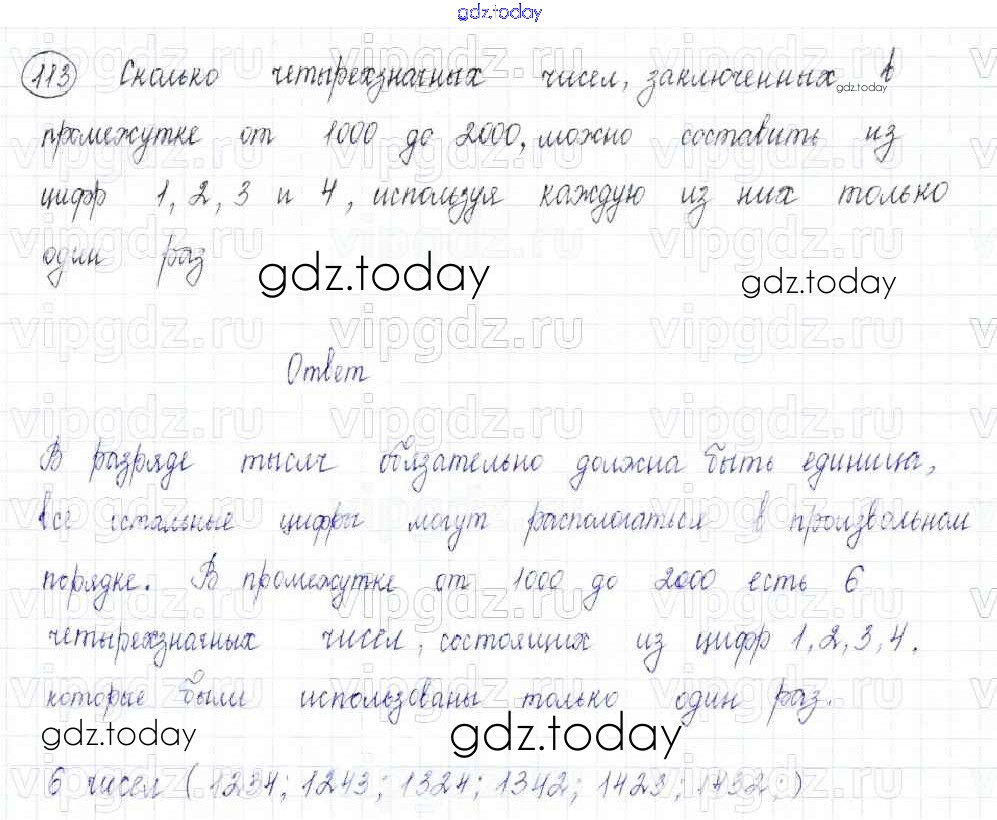 gdz.today
113 Сколько четырехзначных чисел, заключенных в
gdz.today
промежутке от 1000 до 2000, можно составить из
цифр 1, 2, 3 и 4, используя каждую из них только
один раз
gdz.today gdz.today
vipgdz.ru vipgdz.ru vipgdz.ru
Ответ
vipgdz.ru vipgdz.ru vipgdz.ru
В разряде тысяч обязательно должна быть единица,
все остальные цифры могут распологаться в произвольном
порядке. В промежутке от 1000 до 2000 есть 6
четырехзначных чисел, состоящих из цифр 1, 2, 3, 4.
которые были использованы только один раз.
gdz.today gdz.today
6 чисел (1234; 1243; 1324; 1342; 1423; 1432;)